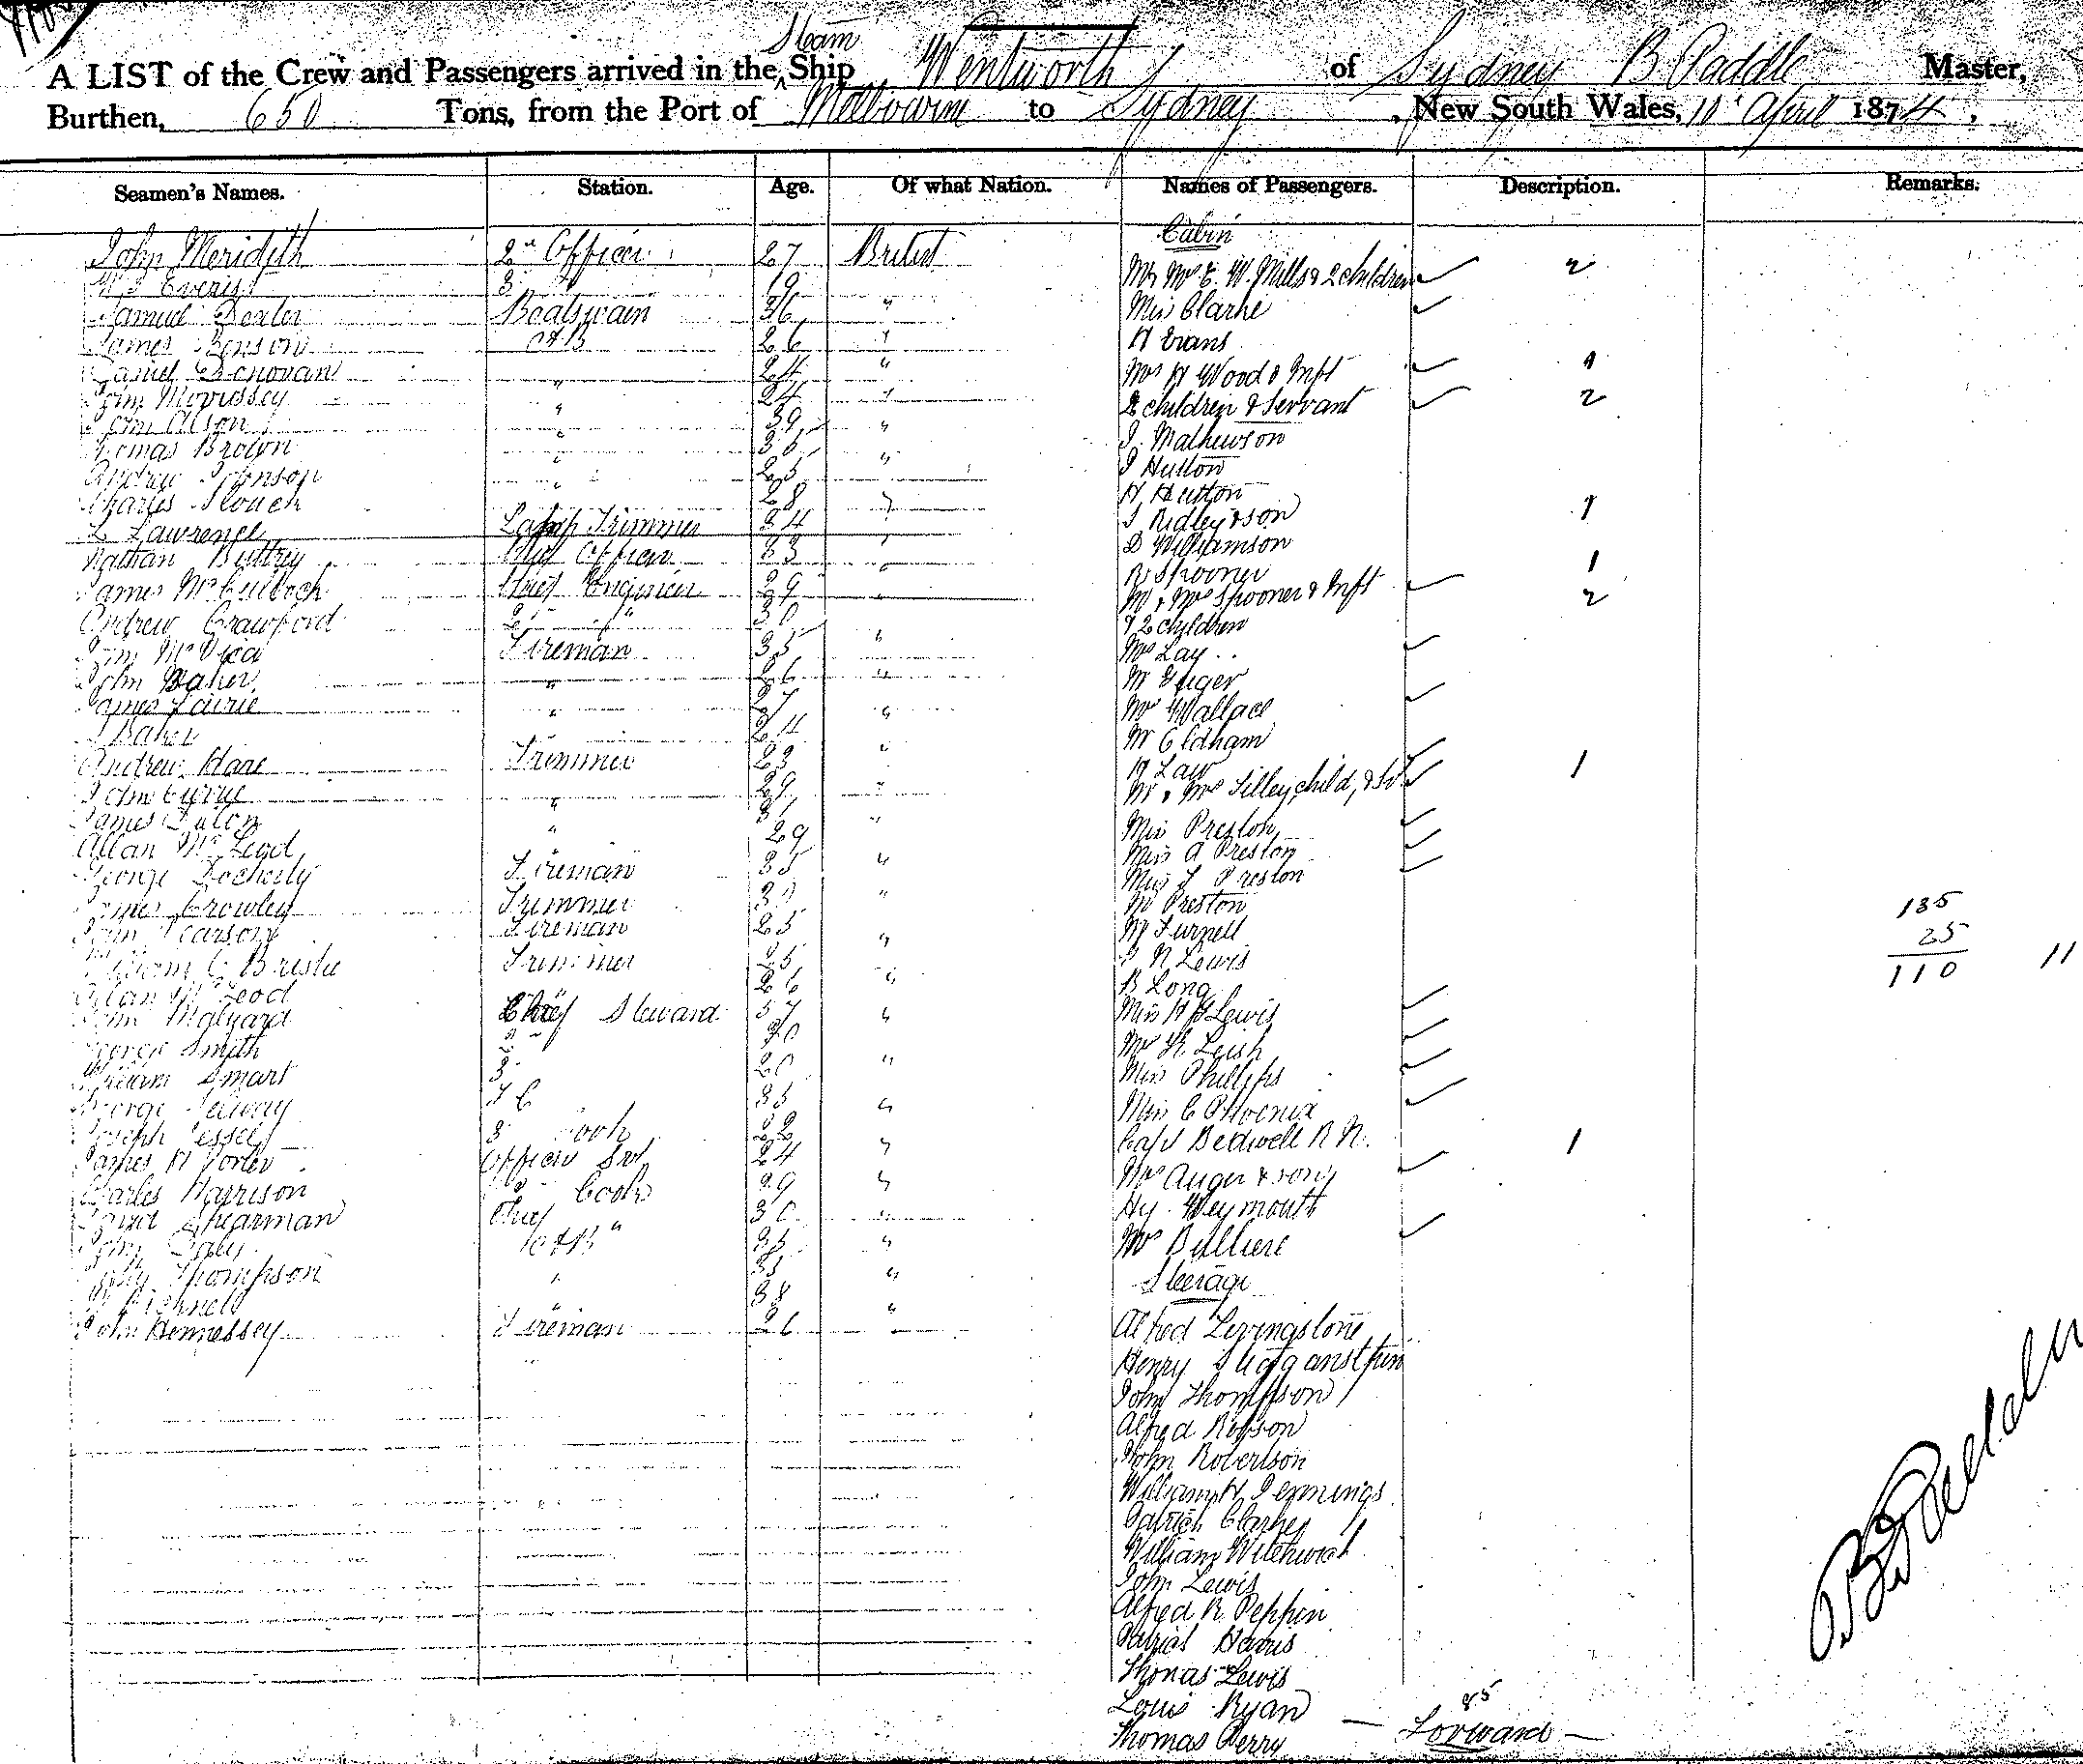 Steam
A LIST of the Crew and Passengers arrived in the Ship Wentworth of Sydney B Paddle Master,
Burthen, 650 Tons, from the Port of Melbourne to Sydney, New South Wales, 10 April 1874.
Seamen's Names. Station. Age. Of what Nation. Names of Passengers. Description. Remarks.
Cabin
John Meridith 2nd Officer 27 British
Mr Mrs E. W. Mills & 2 children 2
W Everist 3 " 19
Samuel Dexter Boatswain 36 " Miss Clarke
James Benson AB 26 " H Evans
Daniel Donovan " 24 " Mrs H Wood & Inft 1
John Morrissey " 24 " 2 children & Servant 2
John Olson " 39 " J. Mathewson
Thomas Brown " 36 J Hutton
Andrew Johnson " 25 " H Hutton
Charles Slouch 28 " J Ridley & son 1
L Lawrence Lamp Trimmer 34 " D Williamson
Nathan Buttrey Chief Officer 33 " R Spooner 1
James McCulloch Chief Engineer 29 " Mr & Mrs Spooner & Inft 2
Andrew Crawford 2 " 30 & 2 children
John Fireman 35 " Mrs Lay
John Baker " 26 " Mr
James Lawrie " 27 " Mrs Wallace
J Baker " 24 Mr Oldham
Andrew Hare Trimmer 23 " Law
John Currie " 29 " Mr & Mrs Tilley, child, & Svt 1
James " 31 " Miss Preston
Allan McLeod " 29 Miss A Preston
George Docherty Fireman 35 " Miss J Preston
James Crowley Trimmer " Mr Preston 135
John Pearson Fireman 25 " Mr Furnell 25
William C Bristie Trimmer 25 " N Lewis 110 11
Allan McLeod " 26 B Long
John Malyard Chief Steward 37 " Miss H Lewis
George Smith 2 " 30 Mrs Leish
William Smart 3 " 20 " Miss Phillips
George Selway 35 " Miss C Phoenix
Joseph Jessel 3 Cook 22 Capt Bedwell R N. 1
James H Porter Officers Svt 24 " Mrs Auger & son
Charles Harrison 2 Cook 29 " Hy. Weymouth
David Shearman Chief " 30 " Mrs Bulliere
John Daly AB 35 "
Thompson " 35 " Steerage
Bicknell " 38 "
John Hennessey Fireman 26 " Alfred Levingstone
Henry
John Thompson
Alfred Robson
John Robertson
William H. Jennings
Patrick Clarke
William
John Lewis
Alfred R. Peppin
Patrick Harris
Thomas Lewis
Louis Ryan 85
Thomas Perry — Forward —
B Paddle